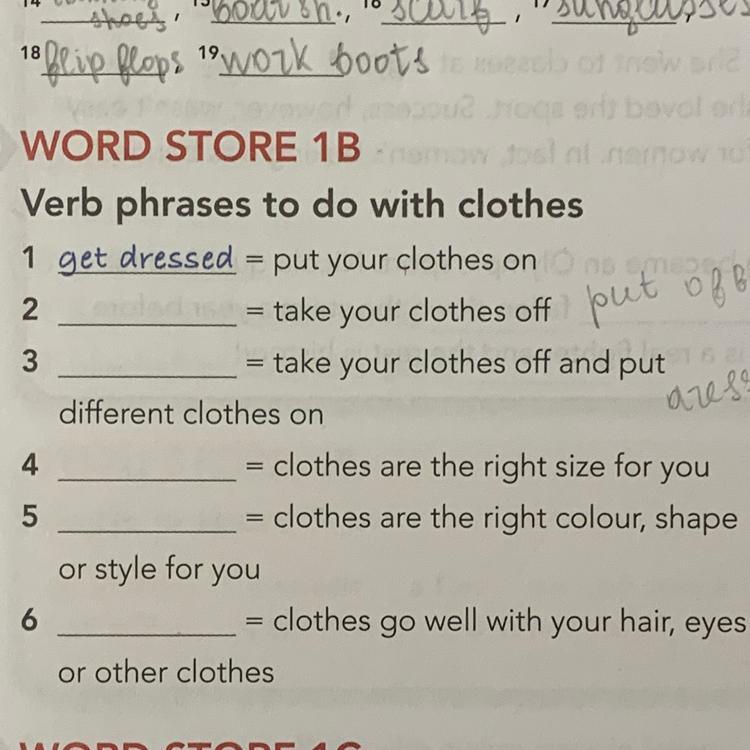 14 shoes, 15 boat sh., 16 scarf, 17 sunglasses
18 flip flops 19 work boots
WORD STORE 1B
Verb phrases to do with clothes
1 get dressed = put your clothes on
2 ____________ = take your clothes off put off
3 ____________ = take your clothes off and put
different clothes on
4 ____________ = clothes are the right size for you
5 ____________ = clothes are the right colour, shape
or style for you
6 ____________ = clothes go well with your hair, eyes
or other clothes
WORD STORE 1C